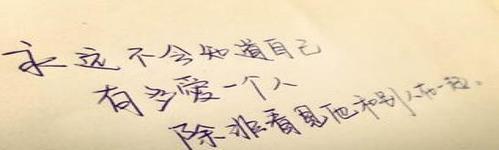 永远不会知道自己
有多爱一个人
除非看见他和别人在一起.